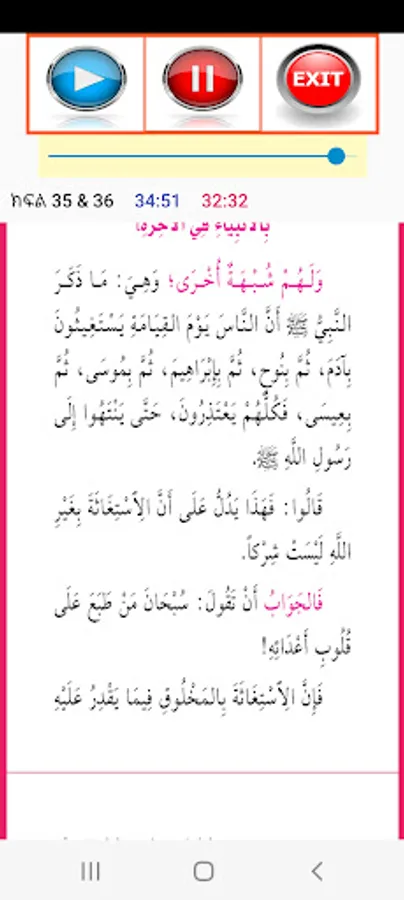 EXIT
ክፍል 35 & 36 34:51 32:32
وَلَهُمْ شُبْهَةٌ أُخْرَى؛ وَهِيَ: مَا ذَكَرَ
النَّبِيُّ ﷺ أَنَّ النَّاسَ يَوْمَ القِيَامَةِ يَسْتَغِيثُونَ
بِآدَمَ، ثُمَّ بِنُوحٍ، ثُمَّ بِإِبْرَاهِيمَ، ثُمَّ بِمُوسَى، ثُمَّ
بِعِيسَى، فَكُلُّهُمْ يَعْتَذِرُونَ، حَتَّى يَنْتَهُوا إِلَى
رَسُولِ اللَّهِ ﷺ.
قَالُوا: فَهَذَا يَدُلُّ عَلَى أَنَّ الِاسْتِغَاثَةَ بِغَيْرِ
اللَّهِ لَيْسَتْ شِرْكاً.
فَالجَوَابُ أَنْ تَقُولَ: سُبْحَانَ مَنْ طَبَعَ عَلَى
قُلُوبِ أَعْدَائِهِ!
فَإِنَّ الِاسْتِغَاثَةَ بِالمَخْلُوقِ فِيمَا يَقْدِرُ عَلَيْهِ